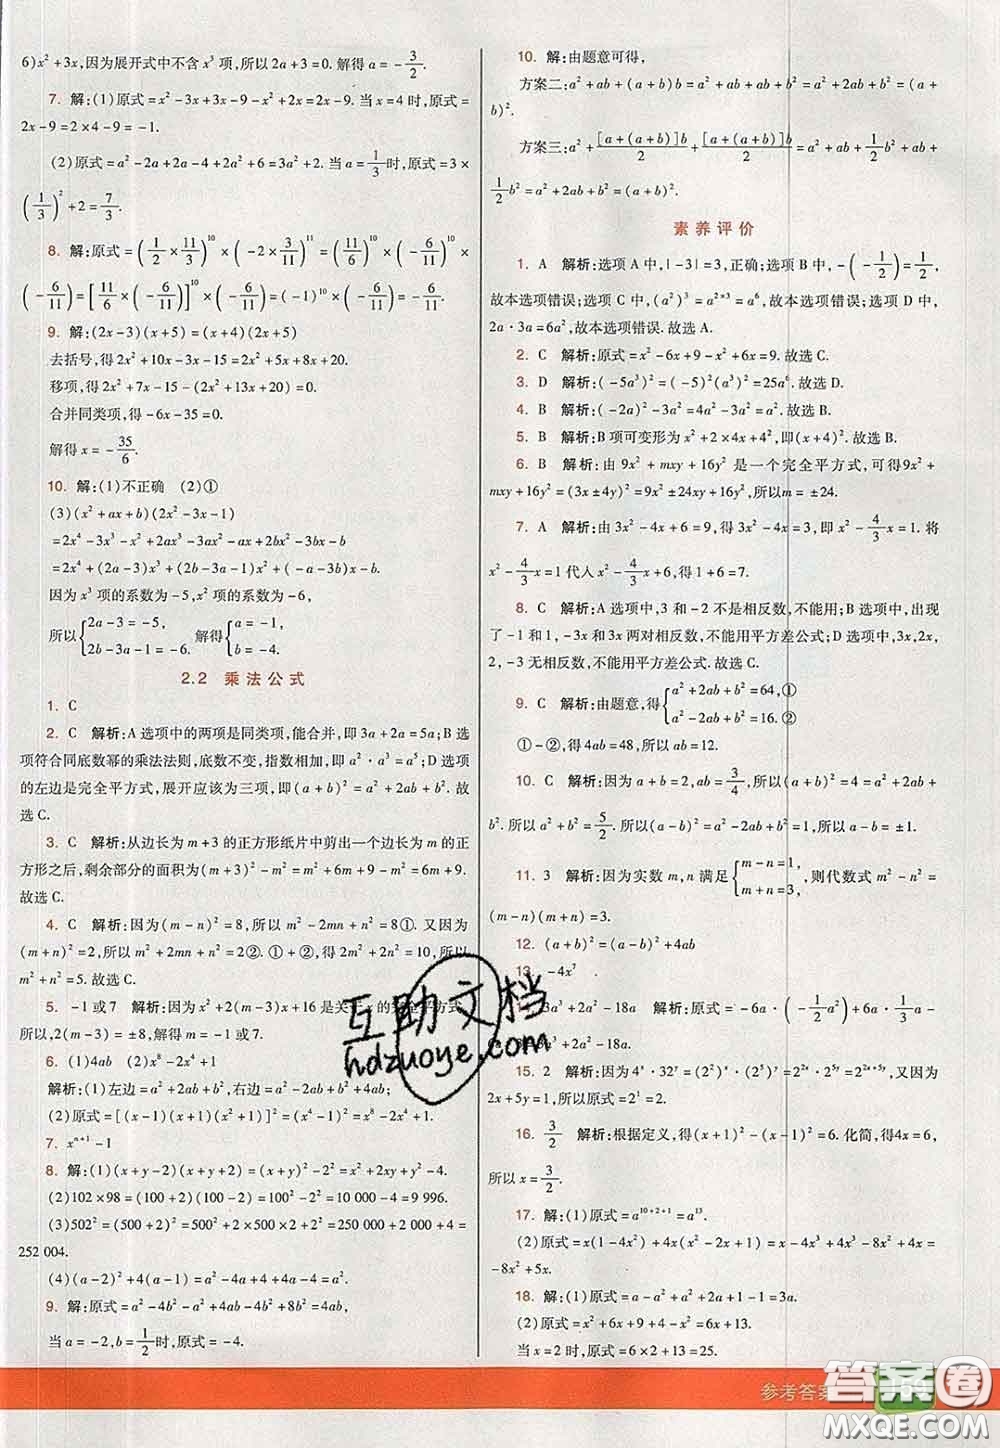 6)x²+3x,因为展开式中不含x³项,所以2a+3=0. 解得a=-3/2.
7. 解:(1)原式=x²-3x+3x-9-x²+2x=2x-9. 当x=4时,原式=
2x-9=2×4-9=-1.
(2)原式=a²-2a+2a-4+2a²+6=3a²+2. 当a=1/3时,原式=3×
(1/3)²+2=7/3.
8. 解:原式=(1/2×11/3)¹⁰×(-2×3/11)¹¹=(11/6)¹⁰×(-6/11)¹⁰×
(-6/11)=[11/6×(-6/11)]¹⁰×(-6/11)=(-1)¹⁰×(-6/11)=-6/11.
9. 解:(2x-3)(x+5)=(x+4)(2x+5)
去括号,得2x²+10x-3x-15=2x²+5x+8x+20.
移项,得2x²+7x-15-(2x²+13x+20)=0.
合并同类项,得-6x-35=0.
解得x=-35/6.
10. 解:(1)不正确 (2)①
(3)(x²+ax+b)(2x²-3x-1)
=2x⁴-3x³-x²+2ax³-3ax²-ax+2bx²-3bx-b
=2x⁴+(2a-3)x³+(2b-3a-1)x²+(-a-3b)x-b.
因为x³项的系数为-5,x²项的系数为-6,
所以{2a-3=-5, 2b-3a-1=-6. 解得{a=-1, b=-4.
2.2 乘法公式
1. C
2. C 解析:A选项中的两项是同类项,能合并,即3a+2a=5a;B选
项符合同底数幂的乘法法则,底数不变,指数相加,即a²·a³=a⁵;D选项
的左边是完全平方式,展开应该为三项,即(a+b)²=a²+2ab+b². 故
选C.
3. C 解析:从边长为m+3的正方形纸片中剪出一个边长为m的正
方形之后,剩余部分的面积为(m+3)²-m²=m²+6m+9-m²=6m+9.
故选C.
4. C 解析:因为(m-n)²=8,所以m²-2mn+n²=8①. 又因为
(m+n)²=2,所以m²+2mn+n²=2②. ①+②,得2m²+2n²=10,所以
m²+n²=5. 故选C.
5. -1或7 解析:因为x²+2(m-3)x+16是关于x的完全平方式,
所以,2(m-3)=±8,解得m=-1或7.
6. (1)4ab (2)x⁸-2x⁴+1
解析:(1)左边=a²+2ab+b²,右边=a²-2ab+b²+4ab;
(2)原式=[(x-1)(x+1)(x²+1)]²=(x⁴-1)²=x⁸-2x⁴+1.
7. xⁿ⁺¹-1
8. 解:(1)(x+y-2)(x+y+2)=(x+y)²-2²=x²+2xy+y²-4.
(2)102×98=(100+2)(100-2)=100²-2²=10 000-4=9 996.
(3)502²=(500+2)²=500²+2×500×2+2²=250 000+2 000+4=
252 004.
(4)(a-2)²+4(a-1)=a²-4a+4+4a-4=a².
9. 解:原式=a²-4b²-a²+4ab-4b²+8b²=4ab,
当a=-2,b=1/2时,原式=-4.
10. 解:由题意可得,
方案二:a²+ab+(a+b)b=a²+ab+ab+b²=a²+2ab+b²=(a+
b)².
方案三:a²+[a+(a+b)]b/2+[a+(a+b)]b/2=a²+ab+1/2b²+ab+
1/2b²=a²+2ab+b²=(a+b)².
素养评价
1. A 解析:选项A中,|-3|=3,正确;选项B中,-(-1/2)=1/2,
故本选项错误;选项C中,(a²)³=a²ˣ³=a⁶,故本选项错误;选项D中,
2a·3a=6a²,故本选项错误. 故选A.
2. C 解析:原式=x²-6x+9-x²+6x=9. 故选C.
3. D 解析:(-5a³)²=(-5)²(a³)²=25a⁶. 故选D.
4. B 解析:(-2a)²-3a²=4a²-3a²=a². 故选B.
5. B 解析:B项可变形为x²+2×4x+4²,即(x+4)². 故选B.
6. B 解析:由9x²+mxy+16y²是一个完全平方式,可得9x²+
mxy+16y²=(3x±4y)²=9x²±24xy+16y²,所以m=±24.
7. A 解析:由3x²-4x+6=9,得3x²-4x=3,即x²-4/3x=1. 将
x²-4/3x=1代入x²-4/3x+6,得1+6=7.
8. C 解析:A选项中,3和-2不是相反数,不能用;B选项中,出现
了-1和1,-3x和3x两对相反数,不能用平方差公式;D选项中,3x,2x,
2,-3无相反数,不能用平方差公式. 故选C.
9. C 解析:由题意,得{a²+2ab+b²=64,① a²-2ab+b²=16.②
①-②,得4ab=48,所以ab=12. 故选C.
10. C 解析:因为a+b=2,ab=3/4,所以(a+b)²=4=a²+2ab+
b². 所以a²+b²=5/2. 所以(a-b)²=a²-2ab+b²=1. 所以a-b=±1.
11. 3 解析:因为实数m,n满足{m-n=1, m+n=3, 则代数式m²-n²=
(m-n)(m+n)=3.
12. (a+b)²=(a-b)²+4ab
13. -4x⁷
3a³+2a²-18a 解析:原式=-6a·(-1/2a²)-6a·
3a³+2a²-18a.
15. 2 解析:因为4ˣ·32ʸ=(2²)ˣ·(2⁵)ʸ=2²ˣ·2⁵ʸ=2²ˣ⁺⁵ʸ,又因为
2x+5y=1,所以原式=2¹=2.
16. 3/2 解析:根据定义,得(x+1)²-(x-1)²=6. 化简,得4x=6,
所以x=3/2.
17. 解:(1)原式=a¹⁰⁺²⁺¹=a¹³.
(2)原式=x(1-4x²)+4x(1-x²)=x-4x³+4x-4x³=
-8x³+5x.
18. 解:(1)原式=a-a²+a²+2a=3a.
(2)原式=x²+6x+9+x²-4-2x²=6x+5.
当x=2时,原式=6×2+13=25.
参考答案
答案圈
MXQE.COM
互助文档
hdzuoye.com